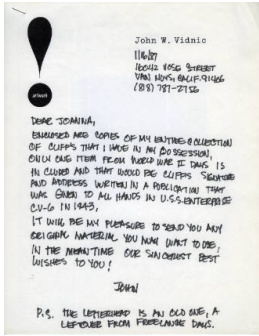 John W. Vidnic
1/16/87
16042 VOSE STREET
VAN NUYS, CALIF. 91406
(818) 787-2756
artwork
DEAR JOANNA,
ENCLOSED ARE COPIES OF MY ENTIRE COLLECTION
OF CLIFF'S THAT I HAVE IN MY POSSESSION.
ONLY ONE ITEM FROM WORLD WAR II DAYS IS
IN CLUDED AND THAT WOULD BE CLIFF'S SIGNATURE
AND ADDRESS WRITTEN IN A PUBLICATION THAT
WAS GIVEN TO ALL HANDS IN U.S.S. ENTERPRISE
CV-6 IN 1943.
IT WILL BE MY PLEASURE TO SEND YOU ANY
ORIGINAL MATERIAL YOU MAY WANT TO USE.
IN THE MEANTIME OUR SINCEREST BEST
WISHES TO YOU!
JOHN
P.S. THE LETTERHEAD IS AN OLD ONE, A
LEFTOVER FROM FREELANCE DAYS.